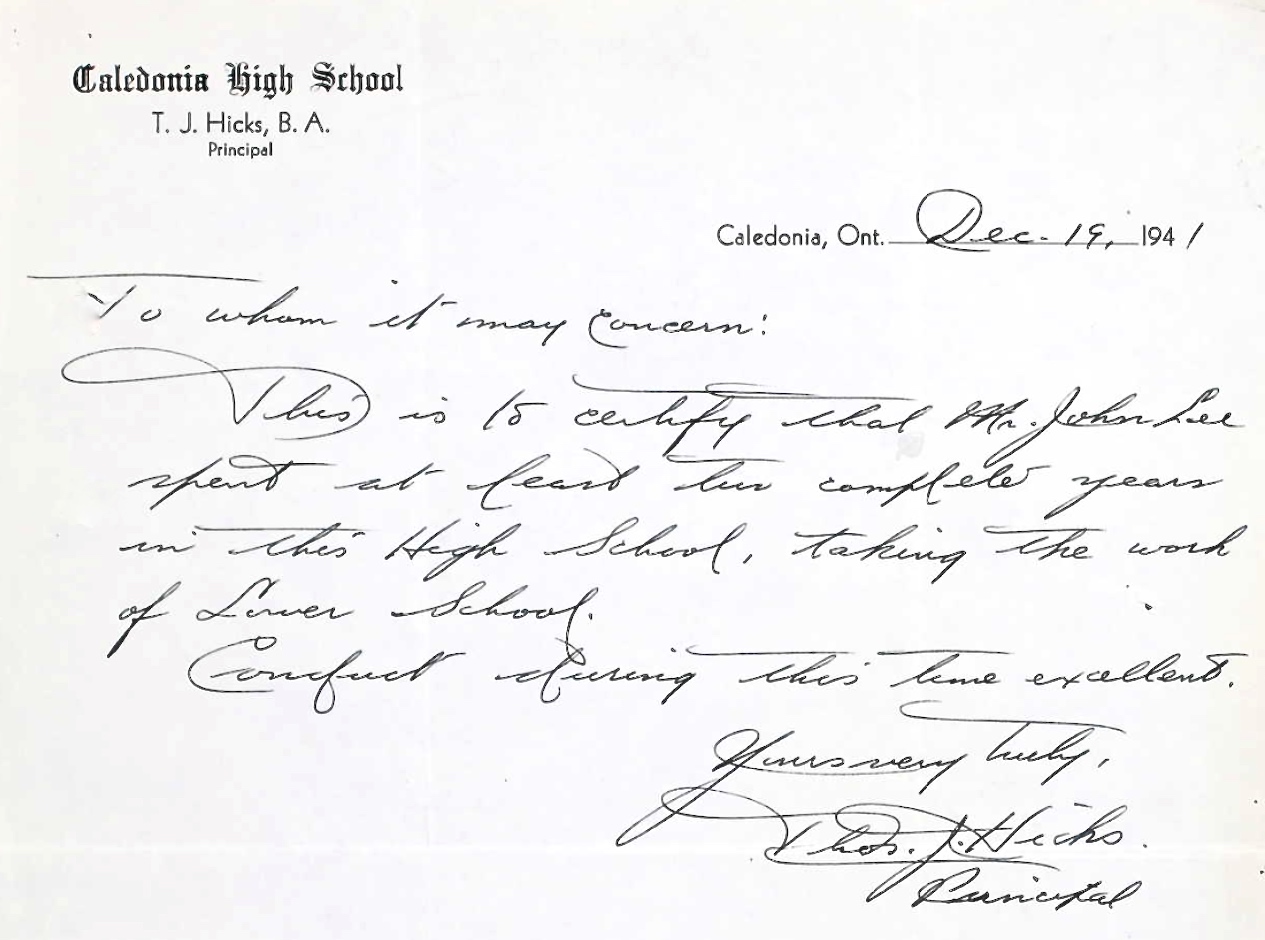 Caledonia High School
T. J. Hicks, B. A.
Principal
Caledonia, Ont. Dec. 19, 1941
To whom it may concern:
This is to certify that Mr. John Lee
spent at least two complete years
in this High School, taking the work
of Lower School.
Conduct during this time excellent.
Yours very truly,
Thos. J. Hicks.
Principal